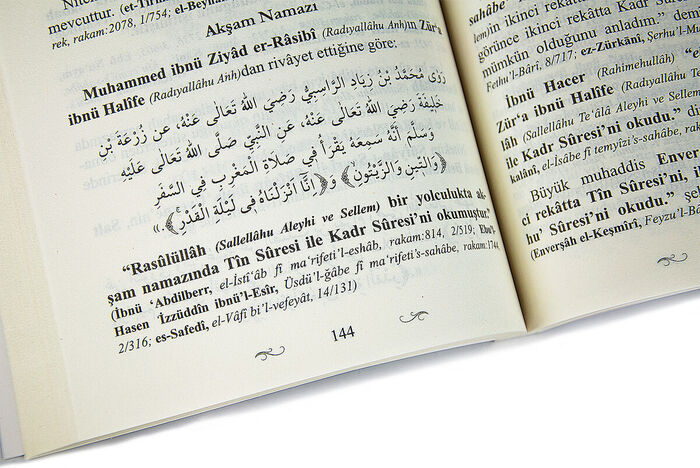 mevcuttur.
rek, rakam:2078, 1/754; el-Beyhakî,
Akşam Namazı
Muhammed ibnü Ziyâd er-Râsibî (Radıyallâhu Anh)ın Zür'a
ibnü Halîfe (Radıyallâhu Anh)dan rivâyet ettiğine göre:
رَوَى مُحَمَّدُ بْنُ زِيَادٍ الرَّاسِبِيُّ رَضِيَ اللهُ تَعَالَى عَنْهُ، عَن زُرْعَةَ بْنِ
خَلِيفَةَ رَضِيَ اللهُ تَعَالَى عَنْهُ، عَنِ النَّبِيِّ صَلَّى اللهُ تَعَالَى عَلَيْهِ
وَسَلَّمَ أَنَّهُ سَمِعَهُ يَقْرَأُ فِي صَلَاةِ الْمَغْرِبِ فِي السَّفَرِ
﴿وَالتِّينِ وَالزَّيْتُونِ﴾ وَ﴿إِنَّا أَنْزَلْنَاهُ فِي لَيْلَةِ الْقَدْرِ﴾.»
“Rasûlüllâh (Sallellâhu Aleyhi ve Sellem) bir yolculukta ak-
şam namazında Tîn Sûresi ile Kadr Sûresi'ni okumuştur.”
(İbnü ‘Abdilberr, el-İstî‘âb fî ma‘rifeti'l-eshâb, rakam:814, 2/519; Ebu'l-
Hasen ‘İzzüddîn ibnü'l-Esîr, Üsdü'l-ğâbe fî ma‘rifeti's-sahâbe, rakam:1744,
2/316; es-Safedî, el-Vâfî bi'l-vefeyât, 14/131)
144
sahâbe
)in ikinci rekâtta Kadr
görünce ikinci rekâtta
mümkün olduğunu anladım.”
Fethu'l-Bârî, 8/717; ez-Zürkânî, Şerhu'l-Mu
İbnü Hacer (Rahimehullâh) “e
Zür'a ibnü Halîfe (Radıyallâhu
lâh (Sallellâhu Te‘âlâ Aleyhi ve Sellem)
ile Kadr Sûresi'ni okudu.”
kalânî, el-İsâbe fî temyîzi's-sahâbe, rak
Büyük muhaddis Enver
ci rekâtta Tîn Sûresi'ni, i
hu' Sûresi'ni okudu.”
(Enverşâh el-Keşmîrî, Feyzu'l-B